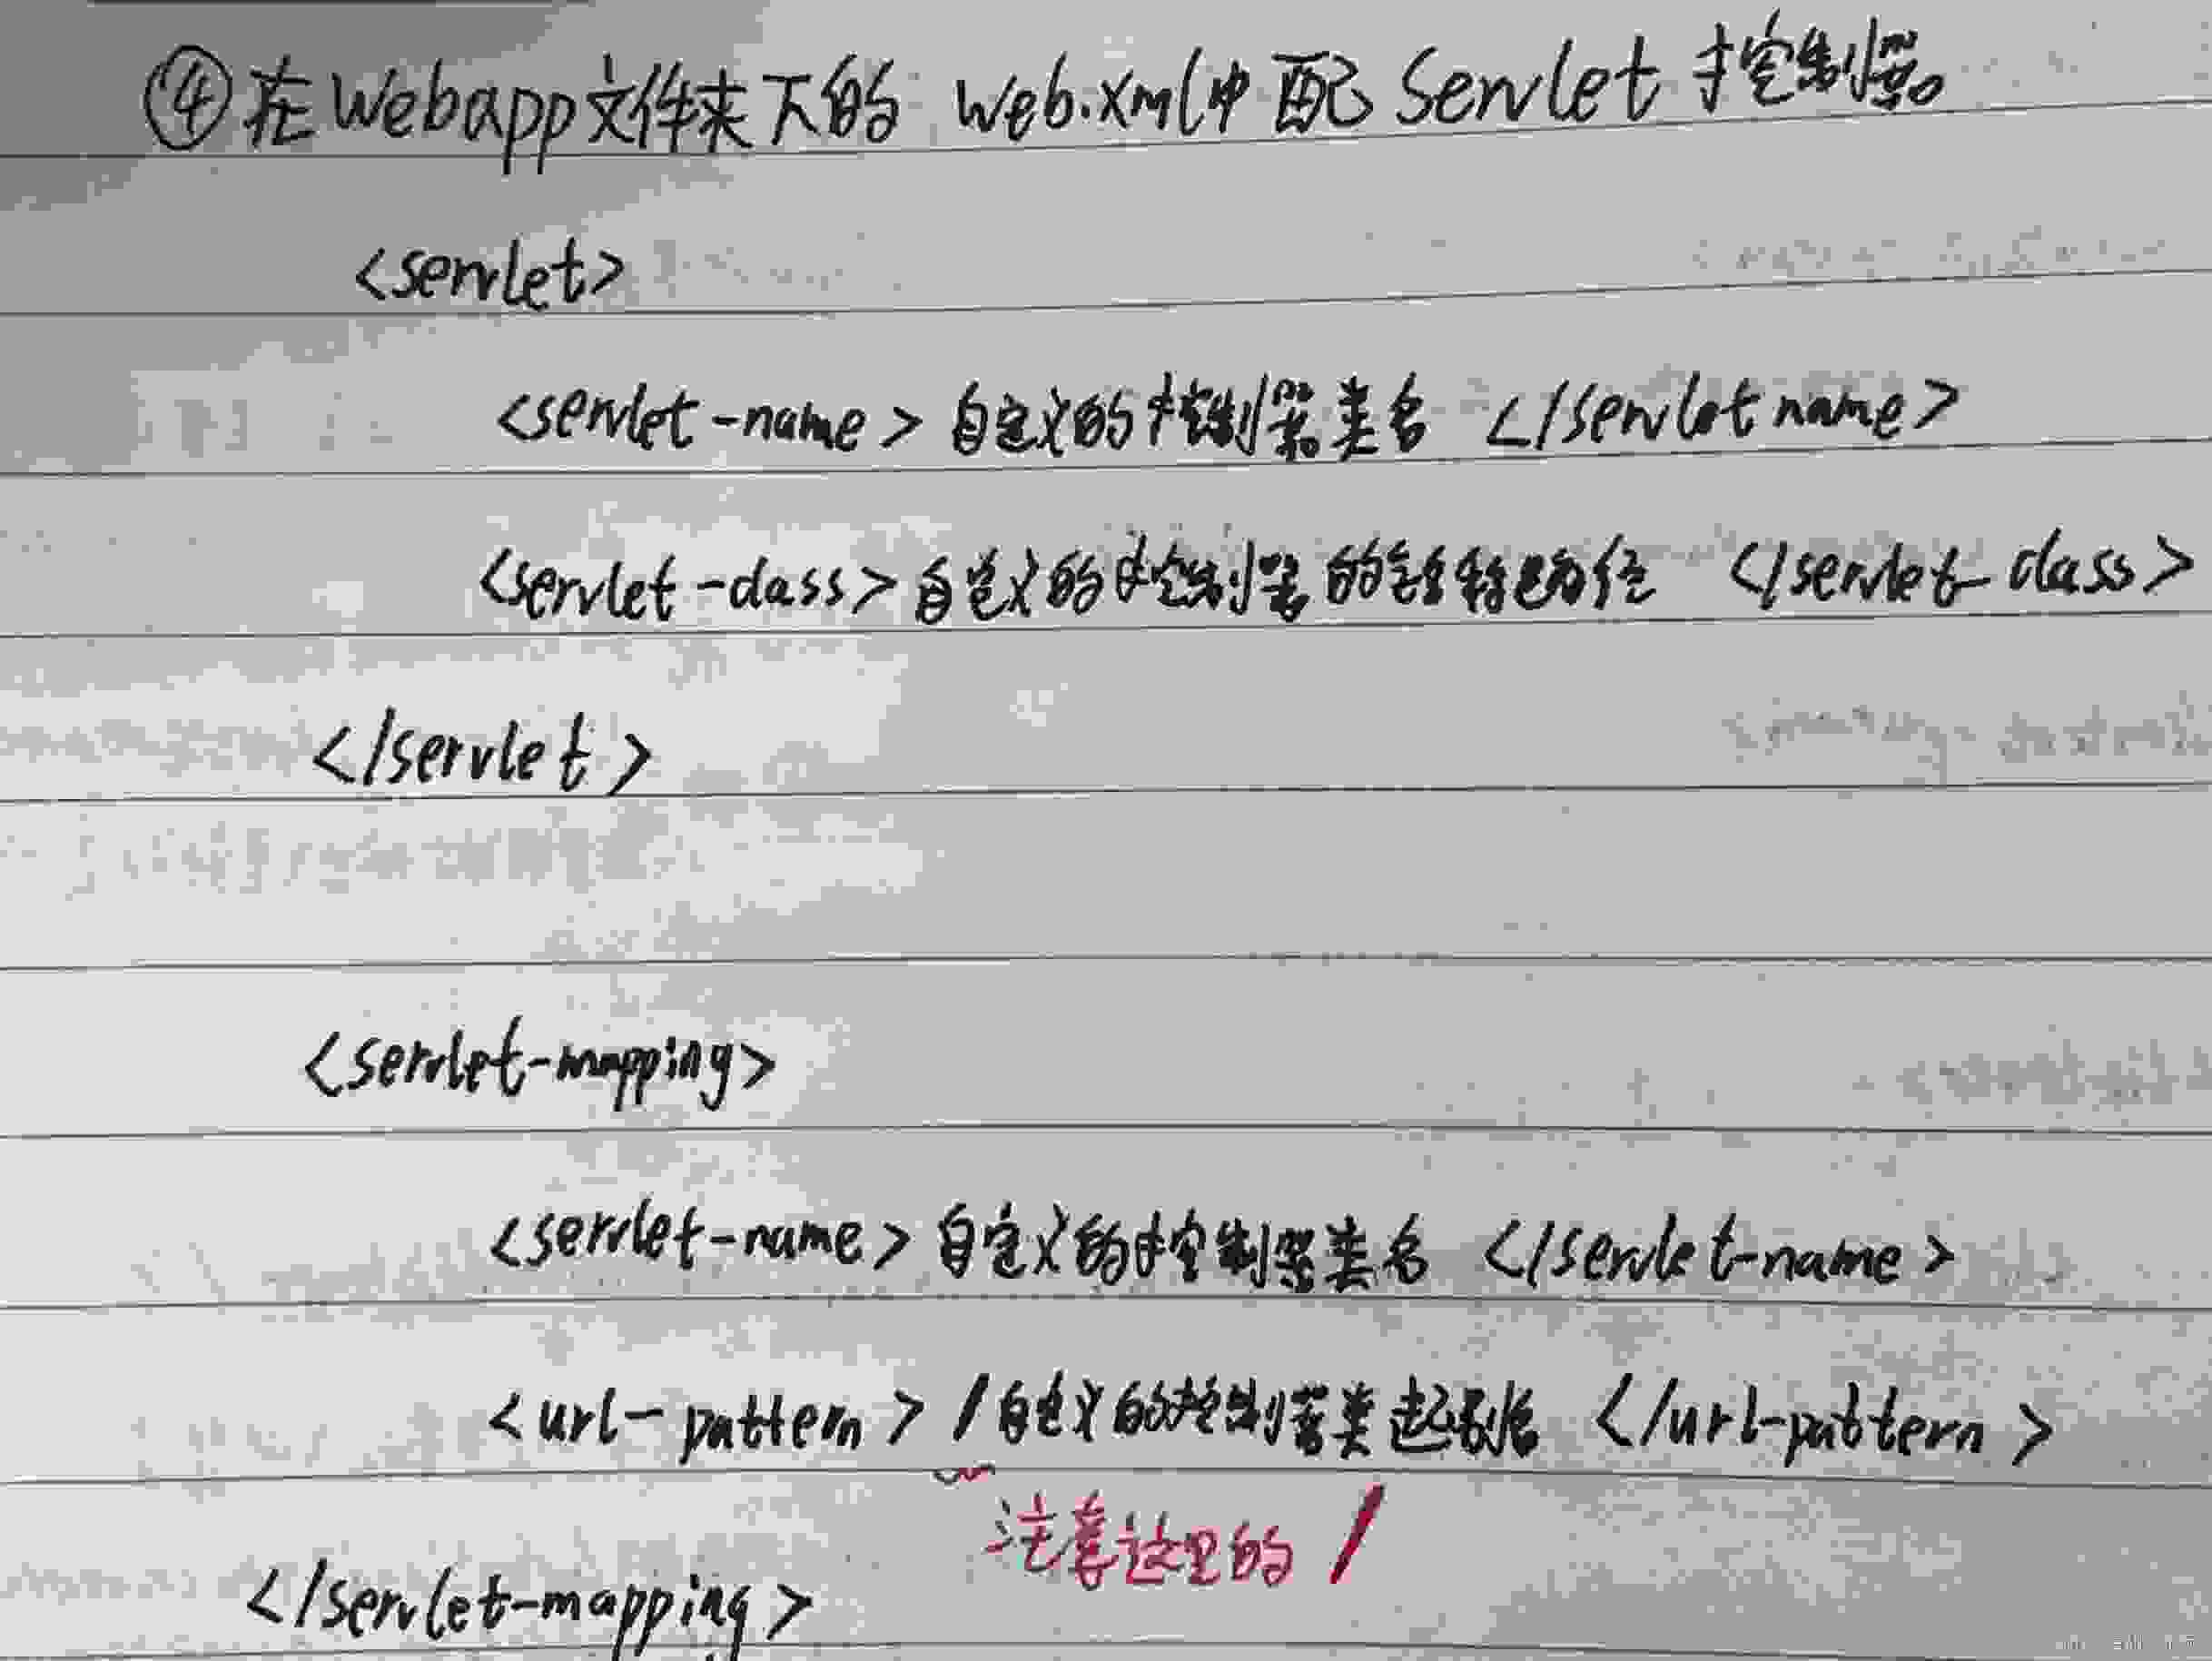 ④在Webapp文件夹下的 web.xml中配Servlet 控制器
<servlet>
<servlet-name> 自定义的控制器类名 </servlet name>
<servlet-class> 自定义的控制器的路径 </servlet-class>
</servlet>
<servlet-mapping>
<servlet-name> 自定义的控制器类名 </servlet-name>
<url-pattern> /自定义的控制器类起别名 </url-pattern>
注意这里的 /
</servlet-mapping>